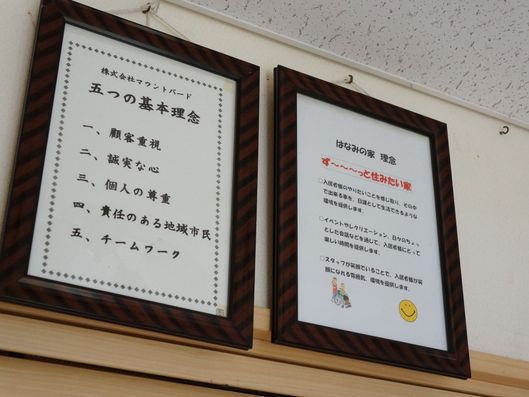 株式会社マウントバード
五つの基本理念
一、顧客重視
二、誠実な心
三、個人の尊重
四、責任のある地域市民
五、チームワーク
はなみの家 理念
ず～～～っと住みたい家
□入居者様のやりたいことを感じ取り、その中
で出来る事を、日課として生活できるような
環境を提供します。
□イベントやレクリエーション、日々のちょっ
とした会話などを通じて、入居者様にとって
楽しい時間を提供します。
□スタッフが笑顔でいることで、入居者様が笑
顔になれる雰囲気、環境を提供します。